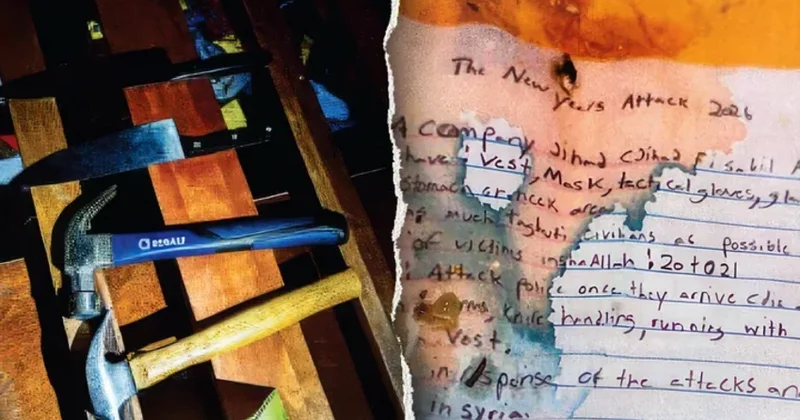 The New Years Attack 2026
Jihad (Jihad fi sabil
have: Vest, Mask, tactical gloves,
stomach or neck area
much taghuti, civilians as possible
of victims inshaAllah: 20 to 21
Attack police once they arrive (die
handling, running with
Vest.
in response of the attacks
in syria.